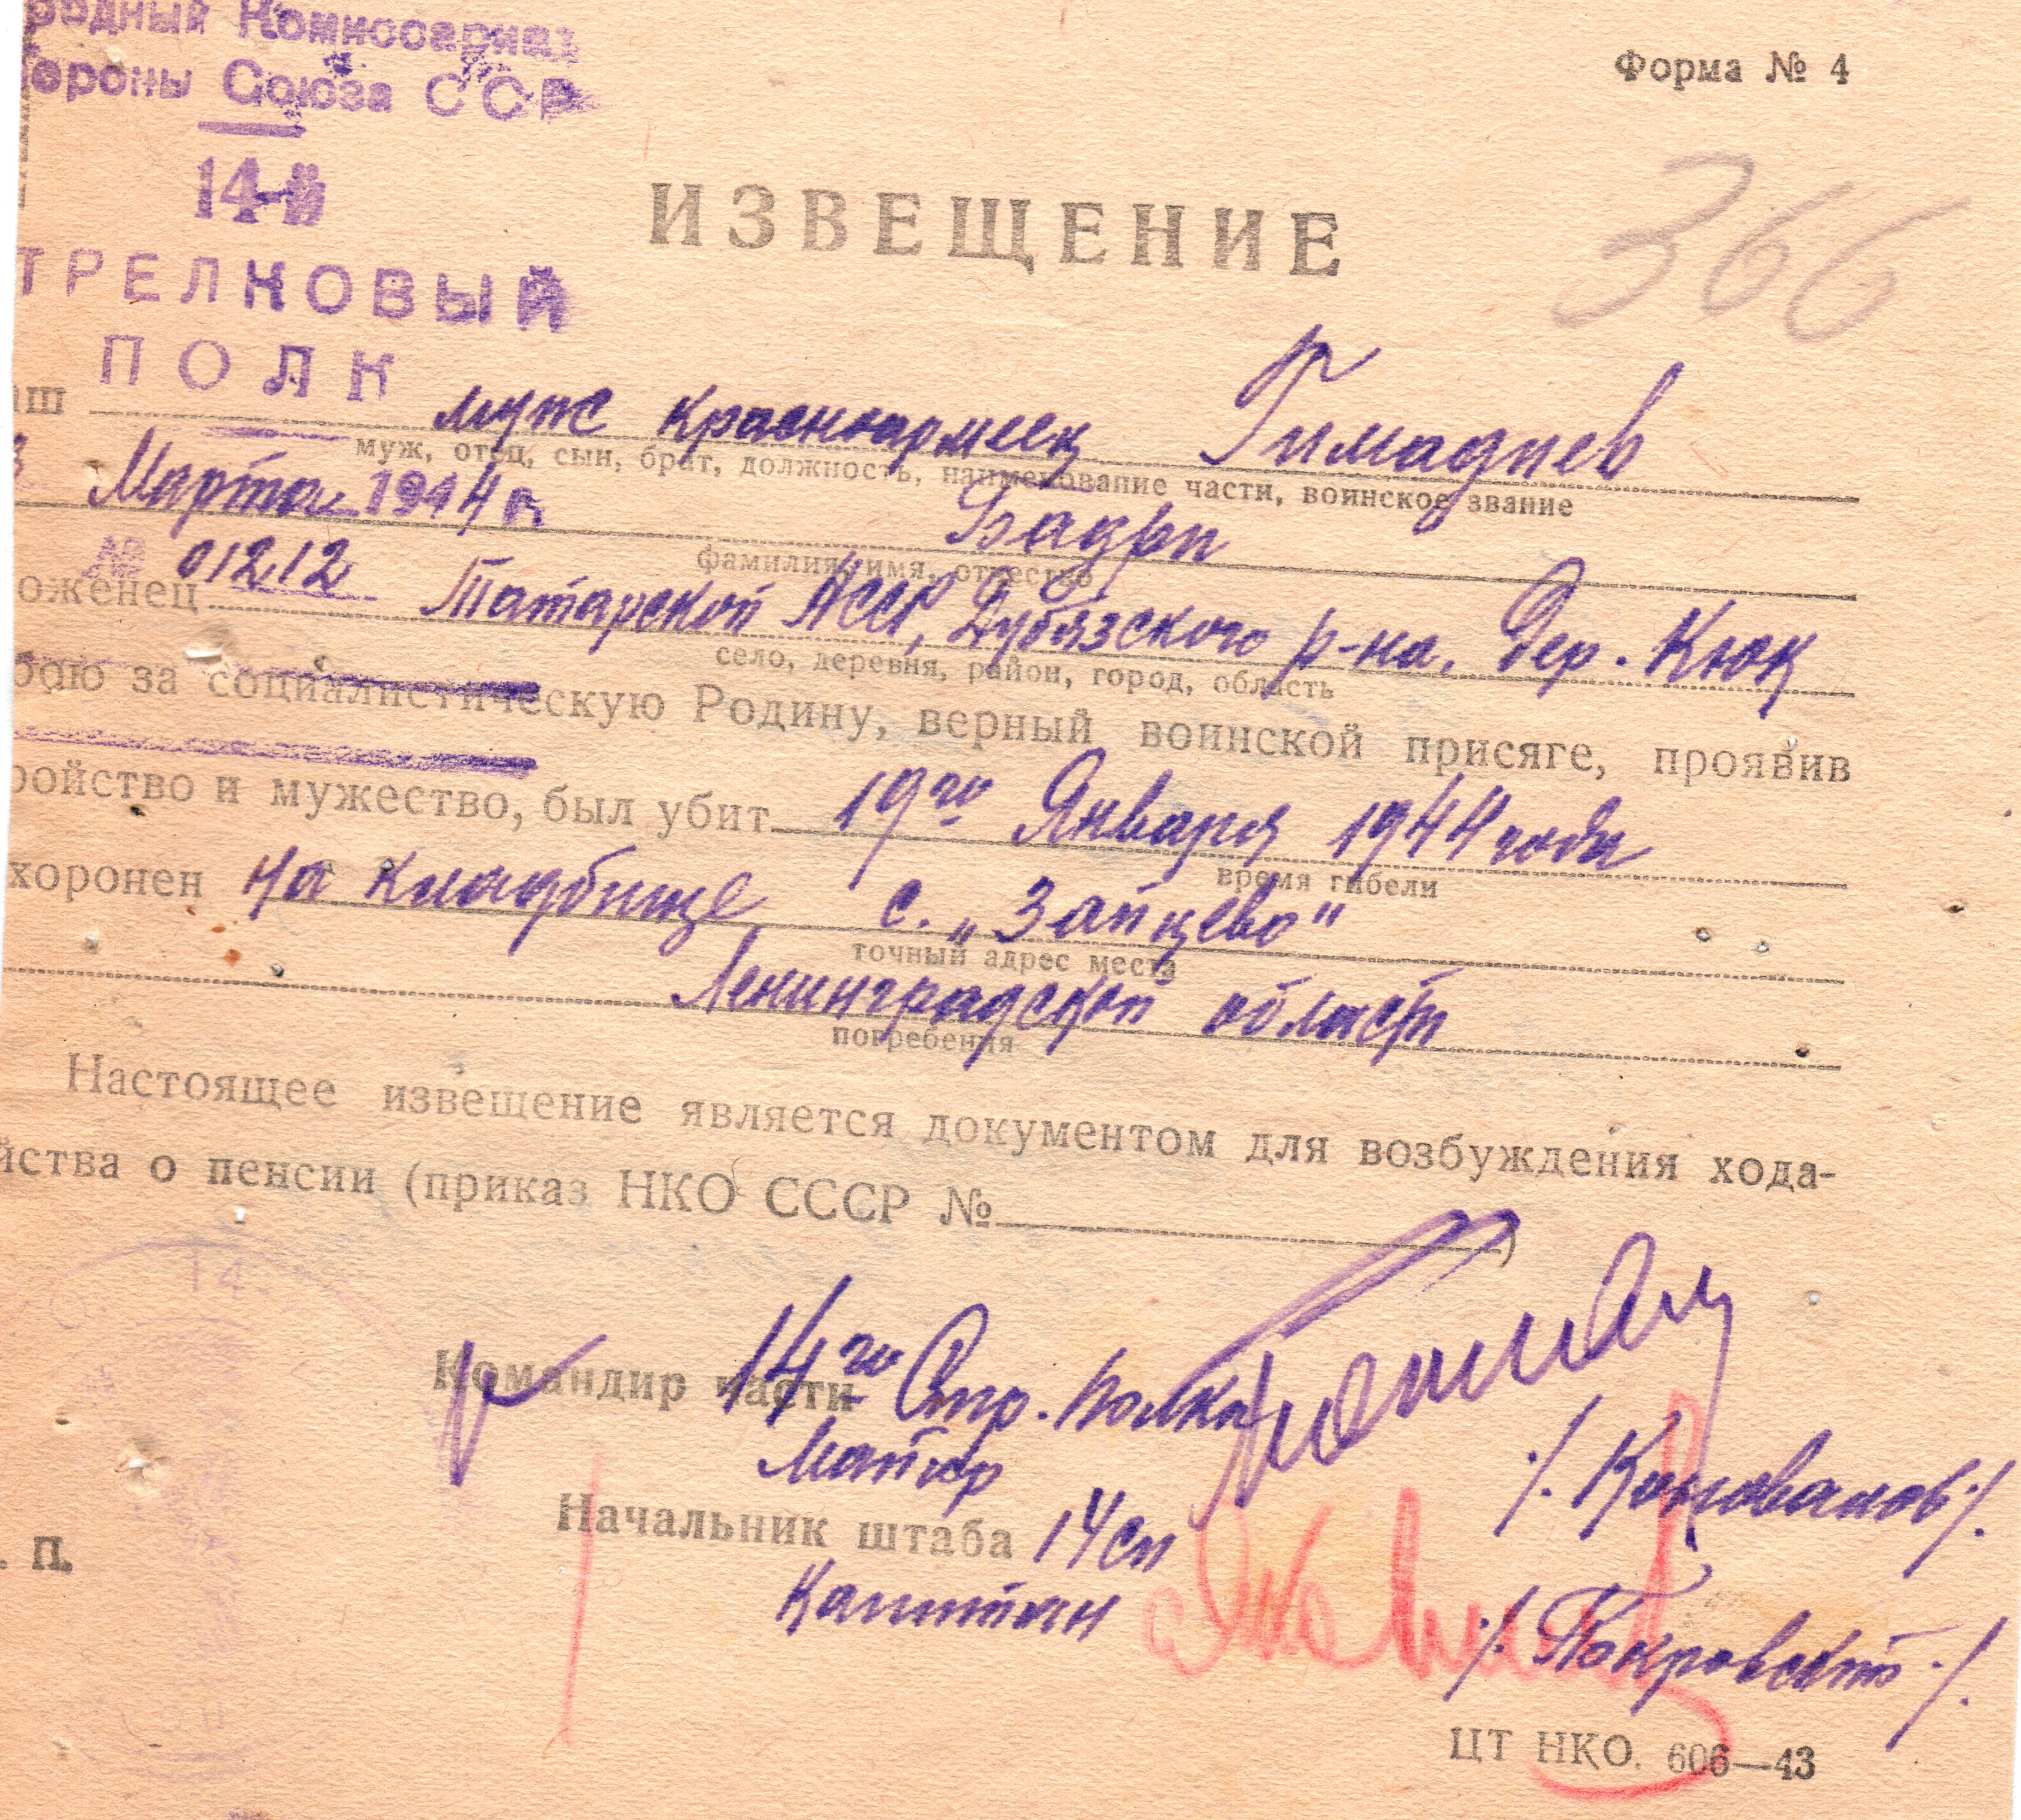 родный Комиссариат
ороны Союза ССР
Форма № 4
14-й
ИЗВЕЩЕНИЕ
366
ТРЕЛКОВЫЙ
ПОЛК
аш муж красноармеец Гимадиев
муж, отец, сын, брат, должность, наименование части, воинское звание
3 Марта 1944 г. Бадри
фамилия, имя, отчество
№ 01212
оженец Татарской АССР, Дубязского р-на, дер. Кюк
село, деревня, район, город, область
бою за социалистическую Родину, верный воинской присяге, проявив
ройство и мужество, был убит 19го Января 1944 года
время гибели
хоронен на кладбище с. „Зайцево"
точный адрес места
Ленинградской области
погребения
Настоящее извещение является документом для возбуждения хода-
йства о пенсии (приказ НКО СССР № )
14
Командир части 14го Стр. Полка
Майор /. Коновалов ./.
Начальник штаба 14 сп
. П.
Капитан /. Покровский ./.
ЦТ НКО. 606—43